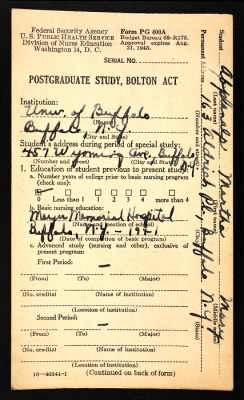 Federal Security Agency
U. S. PUBLIC HEALTH SERVICE
Division of Nurse Education
Washington 14, D. C.
Form PG 400A
Budget Bureau 68–R175.
Approval expires Aug.
31, 1945.
SERIAL NO.
POSTGRADUATE STUDY, BOLTON ACT
Institution:
Univ. of Buffalo
(Name)
Buffalo N.Y.
(City and State)
Student's address during period of special study:
457 Wyoming Ave, Buffalo N.Y.
(Number and street) (City and State)
1. Education of student previous to present study:
a. Number years of college prior to basic nursing program
(check one):
0 Less than 1 1 2 3 4 more than 4
b. Basic nursing education:
Meyer Memorial Hospital
(Name and location of school)
Buffalo, N.Y. – 1921
(Date of completion of basic program)
c. Advanced study (nursing and other), exclusive of
present program:
First Period: –
(From) (To) (Major)
(Name of institution)
(Location of institution)
Second Period: –
(From) (To) (Major)
(Name of institution)
(Location of institution)
16—40344-1 (Continued on back of form)
Student
Martha
Permanent Address
Buffalo N.Y.
(State)